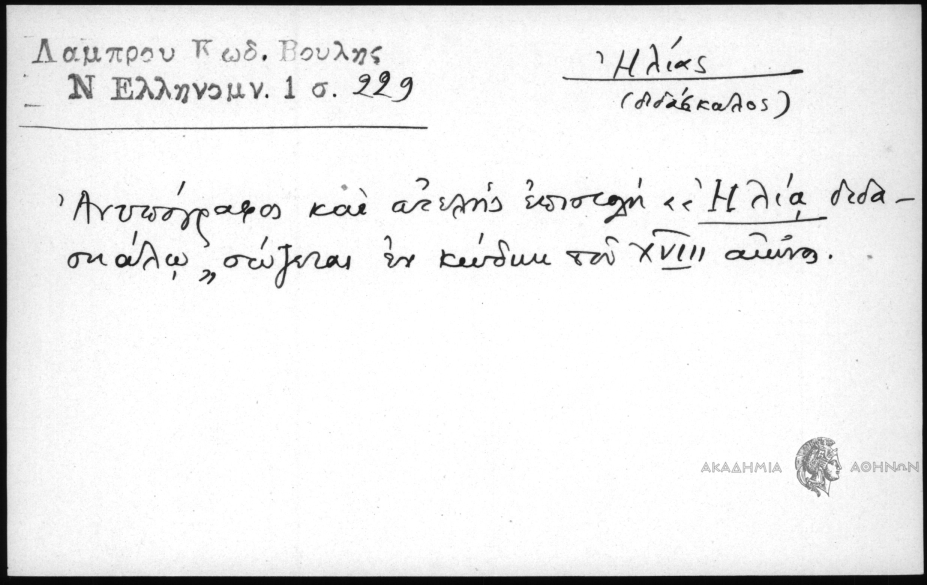 Λαμπρου Κωδ. Βουλης
Ν Ελληνομν. 1 σ. 229
Ἠλίας
(διδάσκαλος)
Ἀνυπόγραφος καὶ ἀτελὴς ἐπιστολὴ «Ἠλίᾳ διδα-
σκάλῳ» σώζεται ἐν κώδικι τοῦ XVIII αἰῶνος.
ΑΚΑΔΗΜΙΑ ΑΘΗΝΩΝ